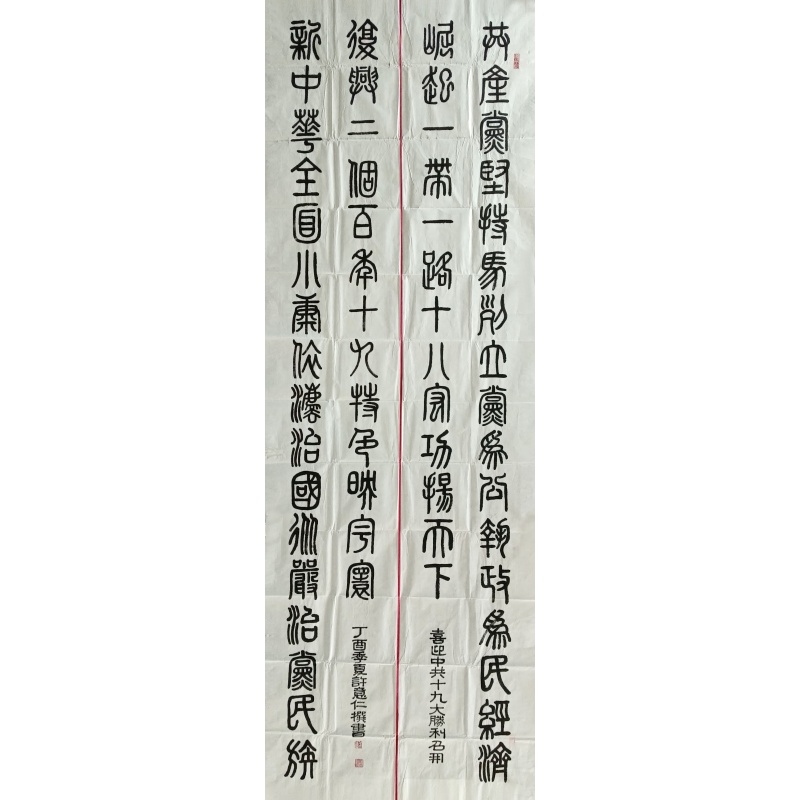 共產黨堅持馬列立黨為公執政為民經濟
崛起一帶一路十八宏功揚天下
喜迎中共十九大勝利召開
新中華全面小康依灋治國從嚴治黨民族
復興二個百年十九特色映宇寰
丁酉季夏許意仁撰書